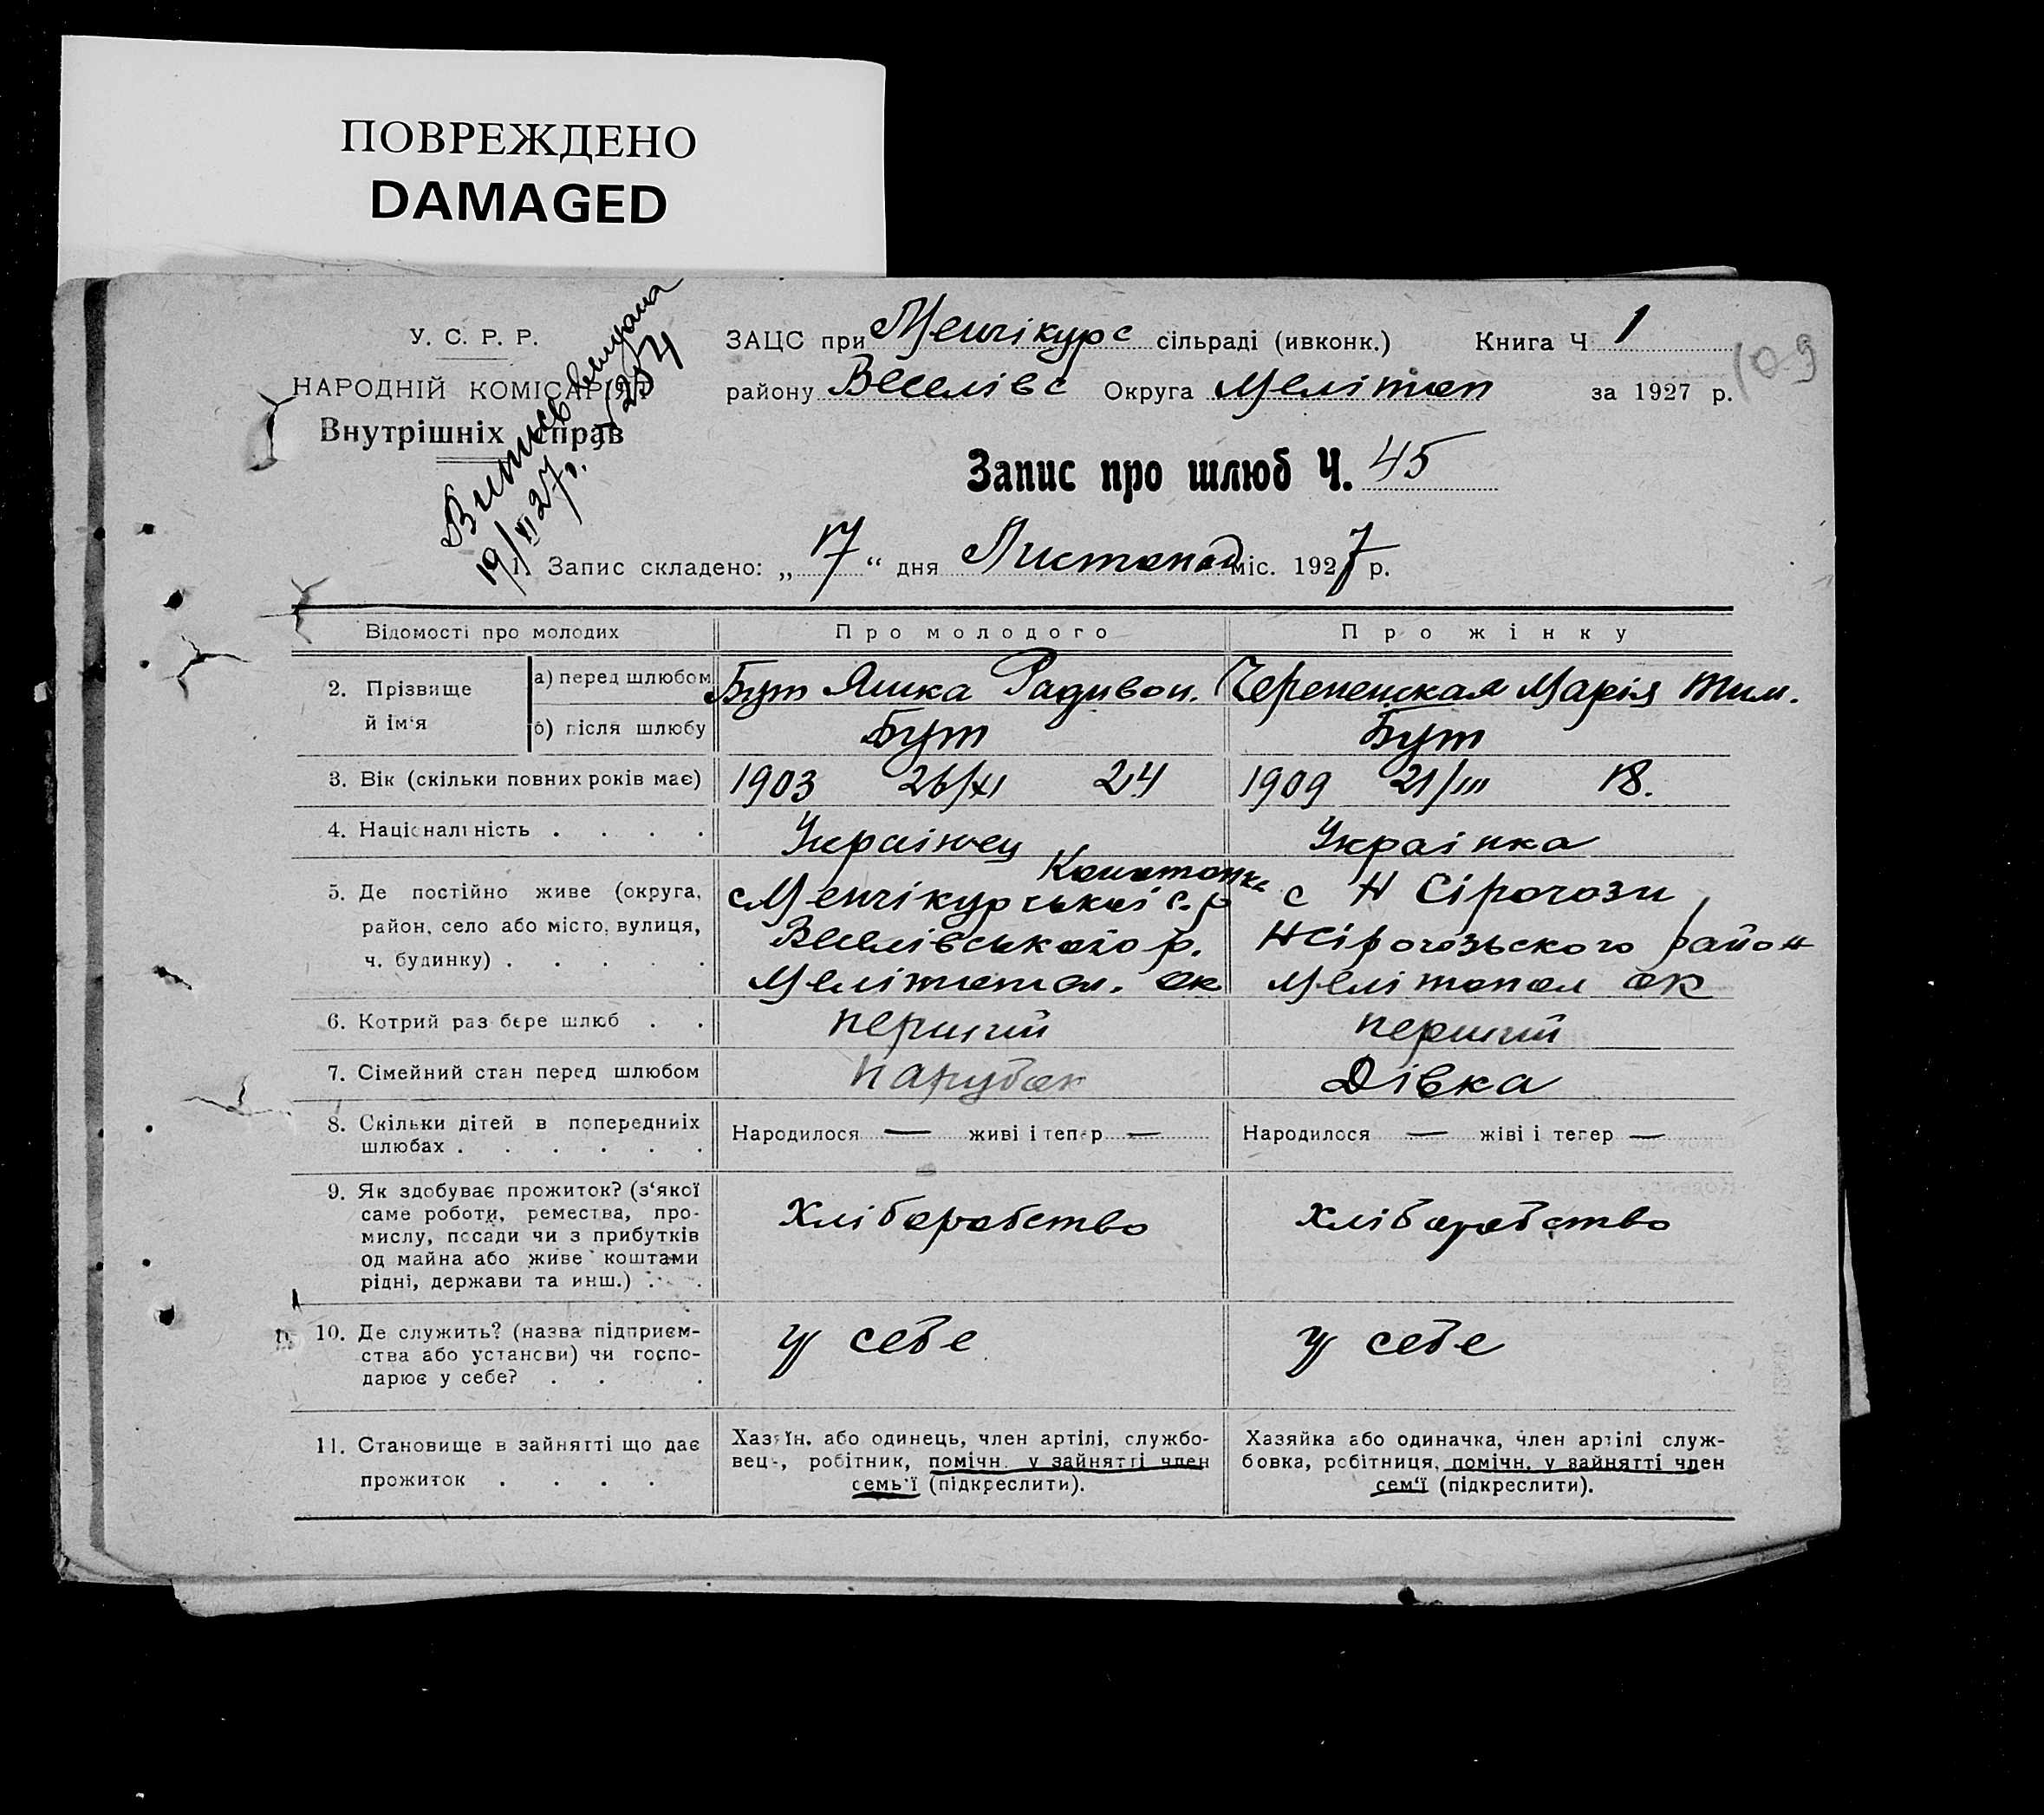 ПОВРЕЖДЕНО
DAMAGED
У. С. Р. Р.
НАРОДНІЙ КОМІСАРІЯТ
Внутрішніх справ
Випись
19/XI 27 р. 254
ЗАЦС при Менчікурс сільраді (ивконк.) Книга Ч 1
109
району Веселівс Округа Мелітоп за 1927 р.
Запис про шлюб Ч. 45
1. Запис складено: „ 17 “ дня Листопад міс. 1927 р.
Відомості про молодих Про молодого Про жінку
2. Прізвище й ім‘я
а) перед шлюбом Бут Яшка Радивон. Марія Тим.
б) після шлюбу Бут Бут
3. Вік (скільки повних років має) 1903 26/XI 24 1909 21/III 18.
4. Національність . . . . Украінец Украінка
5. Де постійно живе (округа, район, село або місто, вулиця, ч. будинку) . . . . .
с Менчікурськоі с.р
Веселівського р.
Мелітопол. ок
с Н Сірогози
НСірогозьского район
Мелітопол ок
6. Котрий раз бере шлюб . . перший перший
7. Сімейний стан перед шлюбом парубок Дівка
8. Скільки дітей в попередніх шлюбах . . . . . .
Народилося — живі і тепер —
Народилося — жіві і тепер —
9. Як здобуває прожиток? (з‘якої
саме роботи, ремества, про-
мислу, посади чи з прибутків
од майна або живе коштами
рідні, держави та инш.) . . .
Хліборобство Хліборобство
10. Де служить? (назва підприєм-
ства або установи) чи госпо-
дарює у себе? . . . .
у себе у себе
11. Становище в зайнятті що дає
прожиток . . . .
Хазяїн, або одинець, член артілі, службо-
вець, робітник, помічн. у зайнятті член
семь‘ї (підкреслити).
Хазяйка або одиначка, член артілі служ-
бовка, робітниця, помічн. у зайнятті член
сем‘ї (підкреслити).